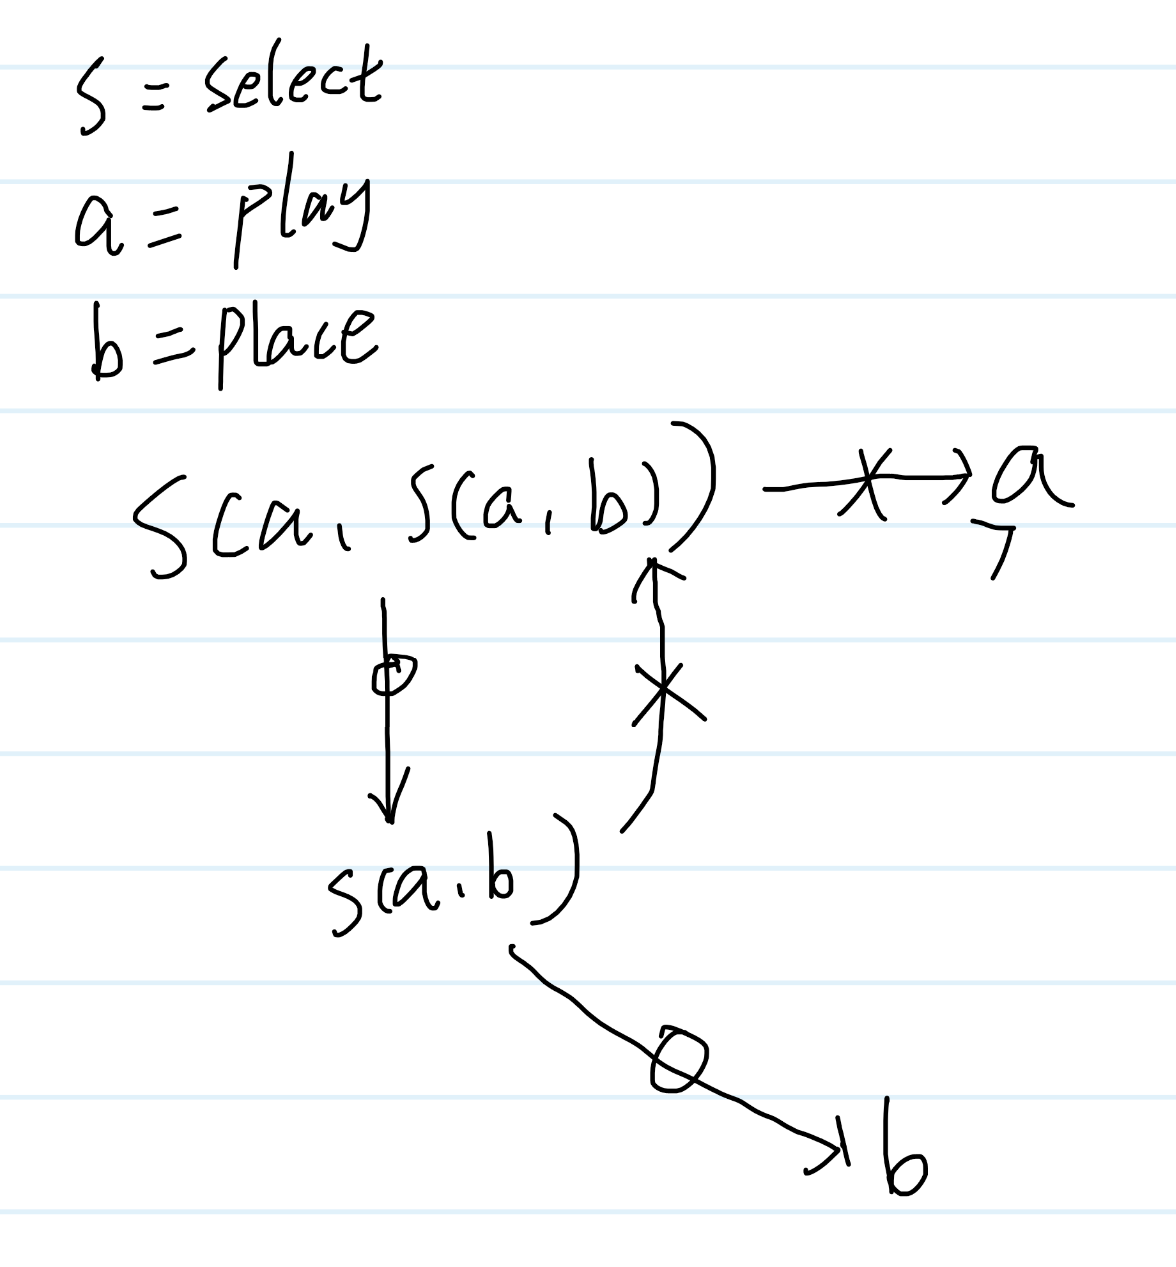 s = select
a = play
b = place
s(a, s(a, b)) a
s(a, b)
b